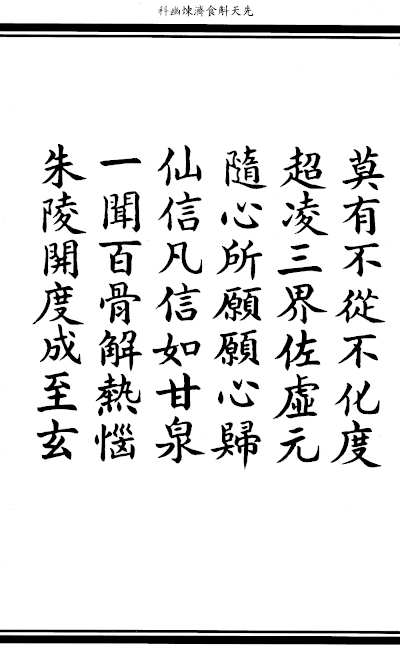 先天斛食濟煉幽科
莫有不從不化度
超凌三界佐虛元
隨心所願願心歸
仙信凡信如甘泉
一聞百骨解熱惱
朱陵開度成至玄